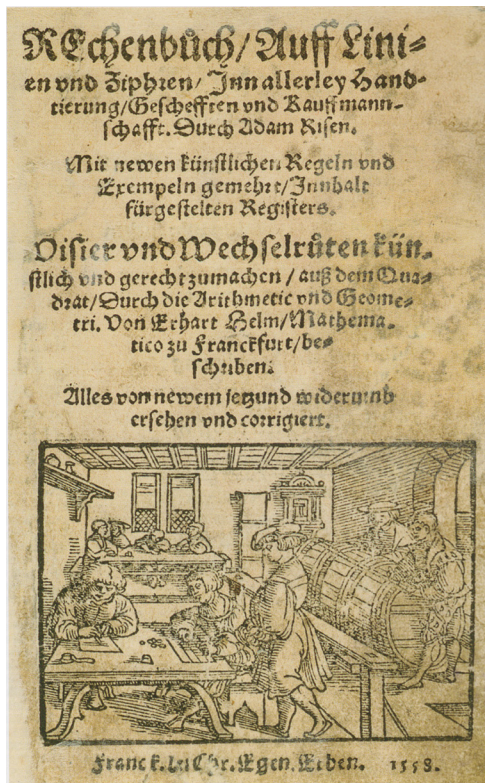 REchenbůch/ Auff Lini-
en vnd Ziphren/ Jnn allerley Hand-
tierung/ Geschefften vnd Kauffmann-
schafft. Durch Adam Risen.
Mit newen künstlichen Regeln vnd
Exempeln gemehrt/ Jnnhalt
fürgestelten Registers.
Visier vnd Wechselrůten kün-
stlich vnd gerecht zumachen / auß dem Qua-
drat/ Durch die Arithmetic vnd Geome-
tri. Von Erhart Helm/ Mathema-
tico zu Franckfurt/ be-
schriben.
Alles von newem jetzund widerumb
ersehen vnd corrigiert.
Franckf. bei Chr. Egen. Erben. 1558.